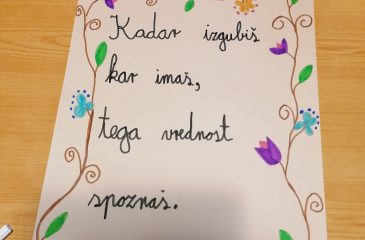 Kadar izgubiš
kar imaš,
tega vrednost
spoznaš.